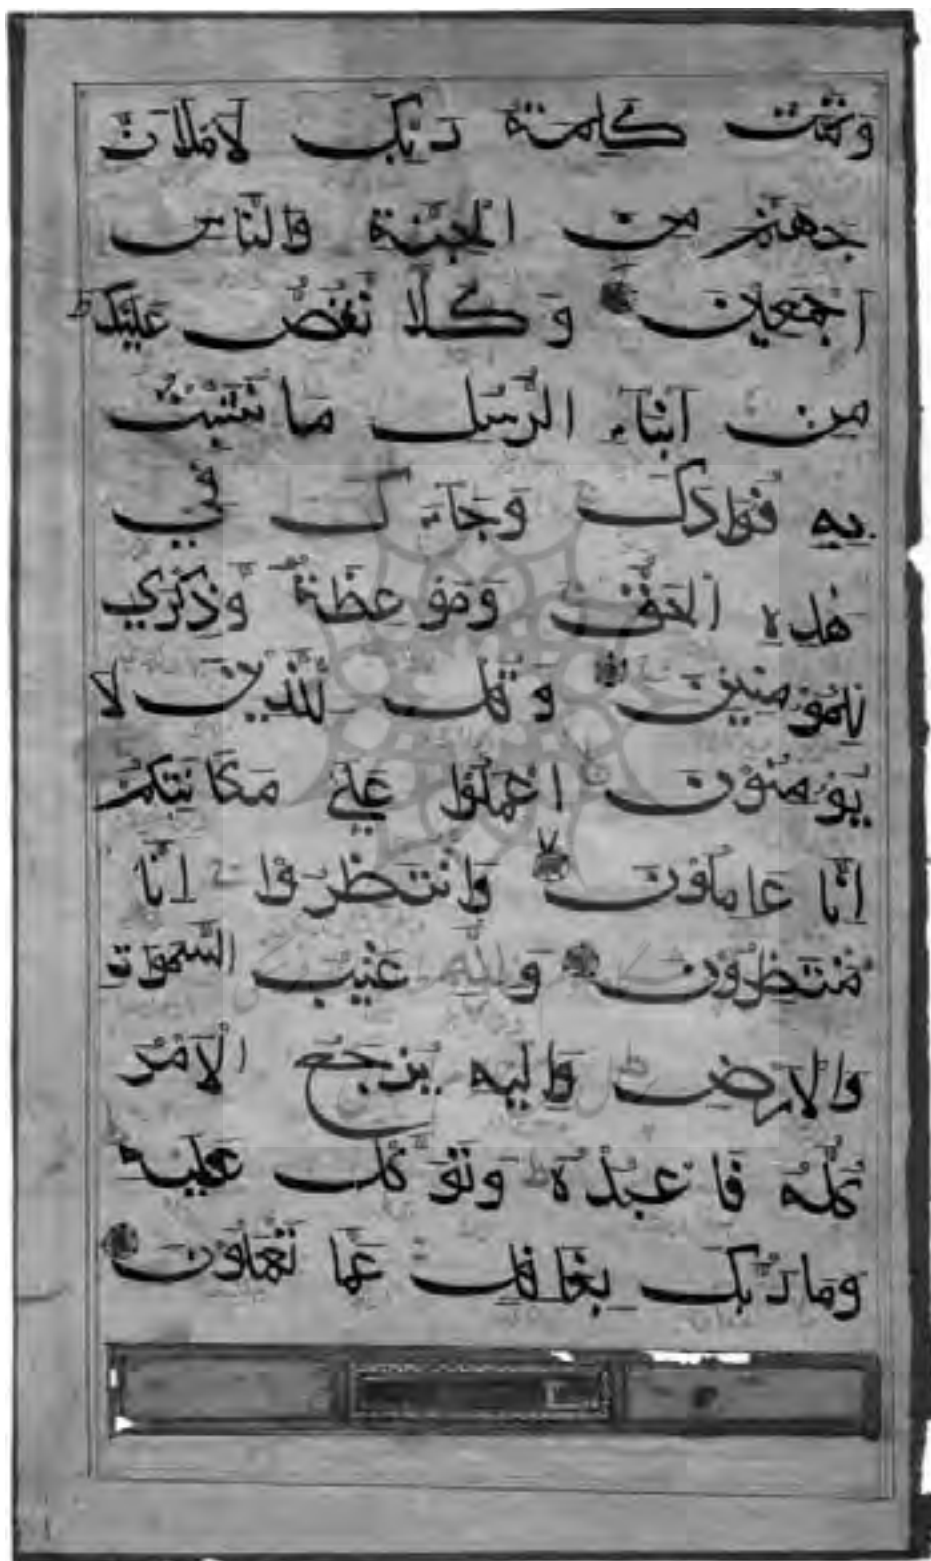 وَتَمَّتْ كَلِمَةُ رَبِّكَ لَأَمْلَأَنَّ
جَهَنَّمَ مِنَ الْجِنَّةِ وَالنَّاسِ
اَجْمَعِينَ وَكُلًّا نَقُصُّ عَلَيْكَ
مِنْ اَنْبَاءِ الرُّسُلِ مَا نُثَبِّتُ
بِهِ فُوَادَكَ وَجَاءَكَ فِي
هٰذِهِ الْحَقُّ وَمَوْعِظَةٌ وَّذِكْرٰي
لِلْمُؤْمِنِينَ وَقُلْ لِّلَّذِينَ لَا
يُؤْمِنُوْنَ اعْمَلُوْا عَلٰي مَكَانَتِكُمْ
اِنَّا عَامِلُوْنَ وَانْتَظِرُوْا اِنَّا
مُنْتَظِرُوْنَ وَلِلّٰهِ غَيْبُ السَّمٰوٰةِ
وَالْاَرْضِ وَاِلَيْهِ يُرْجَعُ الْاَمْرُ
كُلُّهُ فَاعْبُدْهُ وَتَوَكَّلْ عَلَيْهِ
وَمَا رَبُّكَ بِغَافِلٍ عَمَّا تَعْمَلُوْنَ